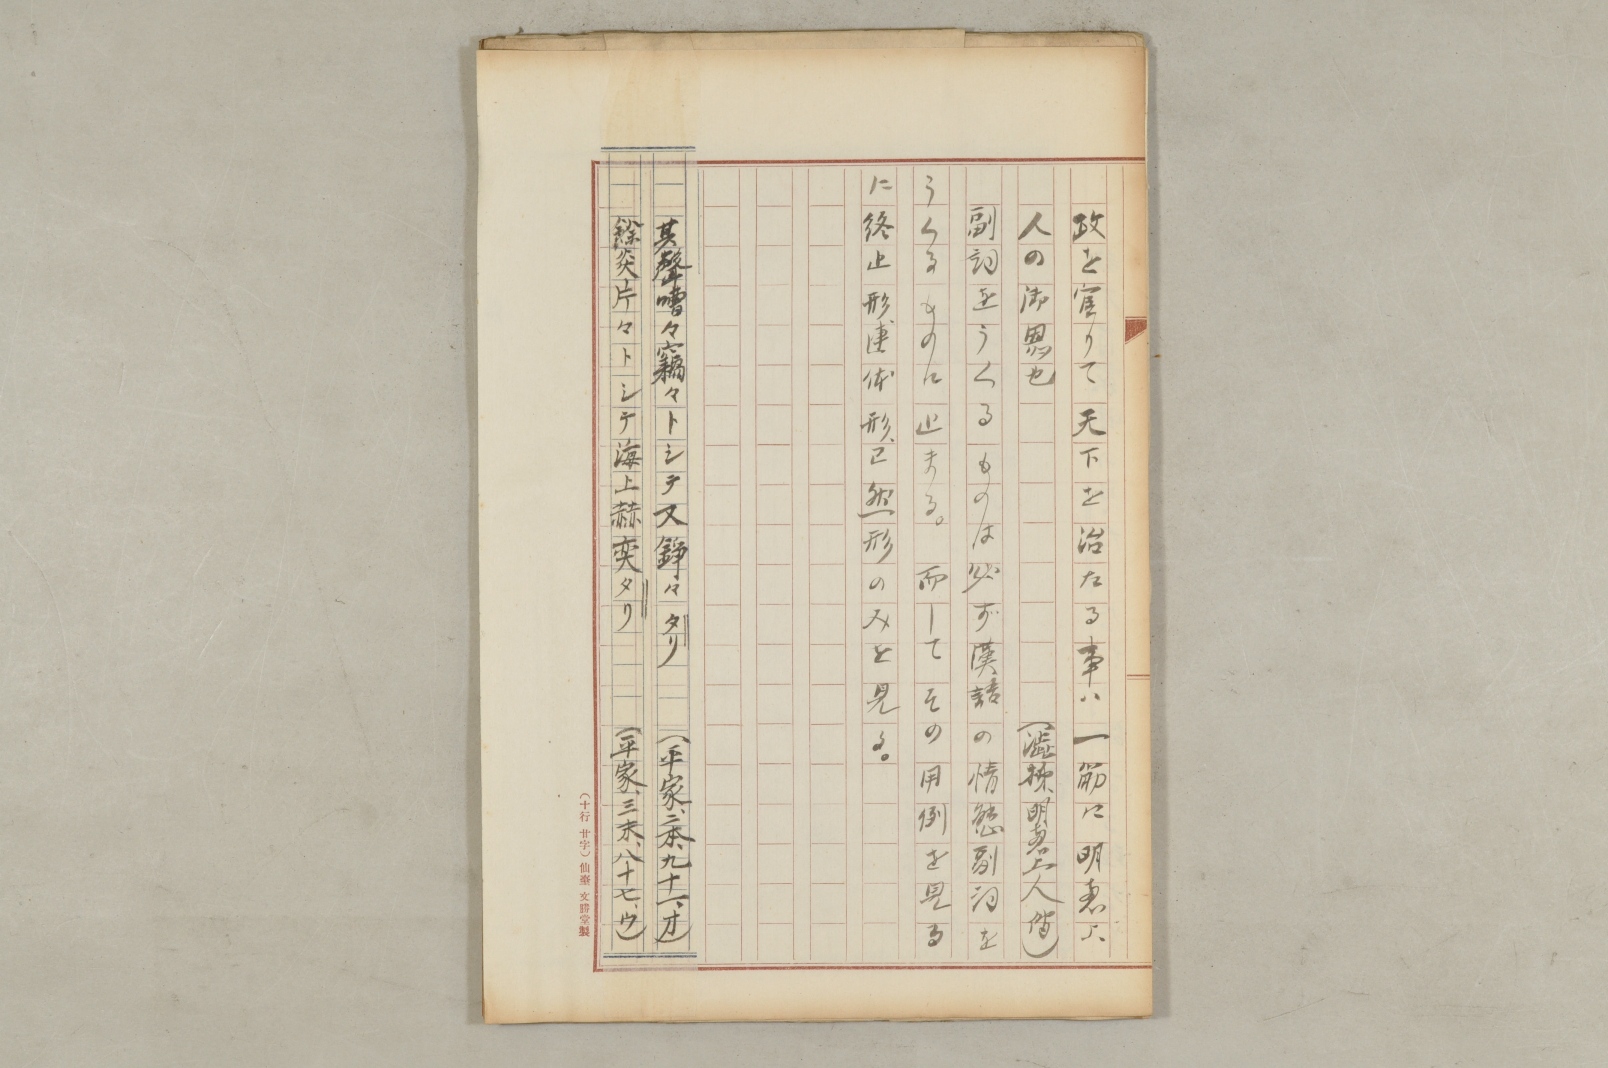 政を官りて天下を治たる事ハ一筋に明恵上
人の御恩也
(澁柿明恵上人傳)
副詞をうくるものは必ず漢語の情態副詞を
うくるものに止まる。而してその用例を見る
に終止形連体形、已然形のみを見る。
其聲嘈々竊々トシテ又錚々タリ
(平家、二本、九十一、オ)
餘炎片々トシテ海上赫奕タリ
(平家、三末、八十七、ウ)
(十行 廿字) 仙臺 文勝堂製